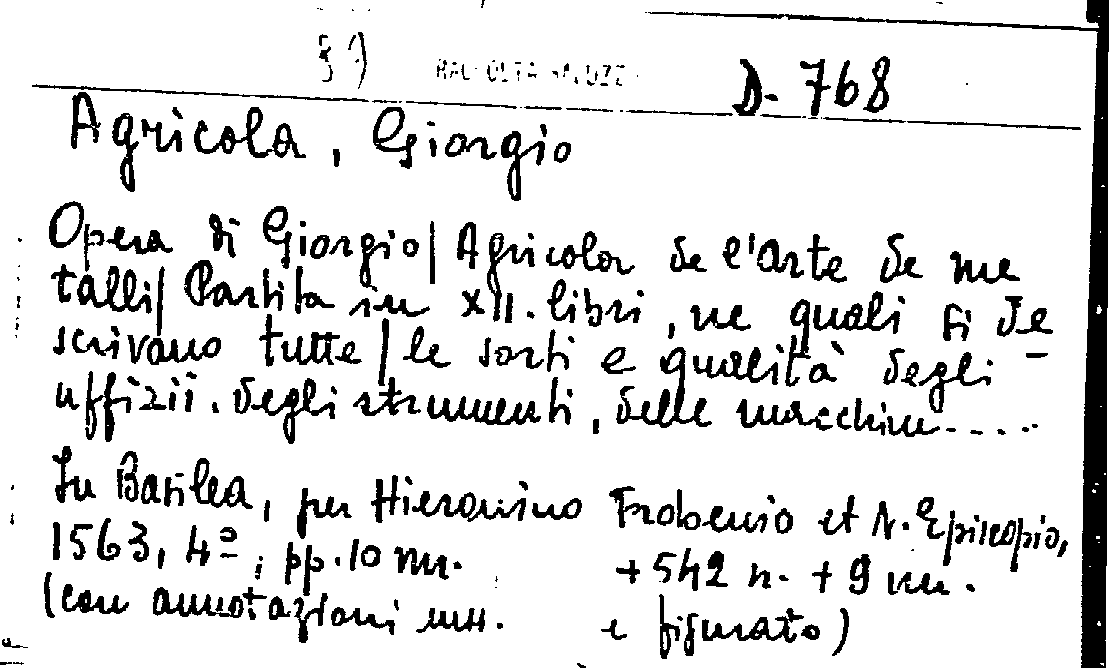 37 RACCOLTA SALUZZO D. 768
Agricola, Giorgio
Opera di Giorgio/ Agricola de l'arte de me
talli/ Partita in XII. libri, ne quali si de
scrivano tutte/ le sorti e qualità degli
uffizii. degli strumenti, delle macchine....
In Basilea, per Hieronimo Frobenio et N. Episcopio,
1563, 4º, pp. 10 nn. + 542 n. + 9 nn.
(con annotazioni mss. e figurato)